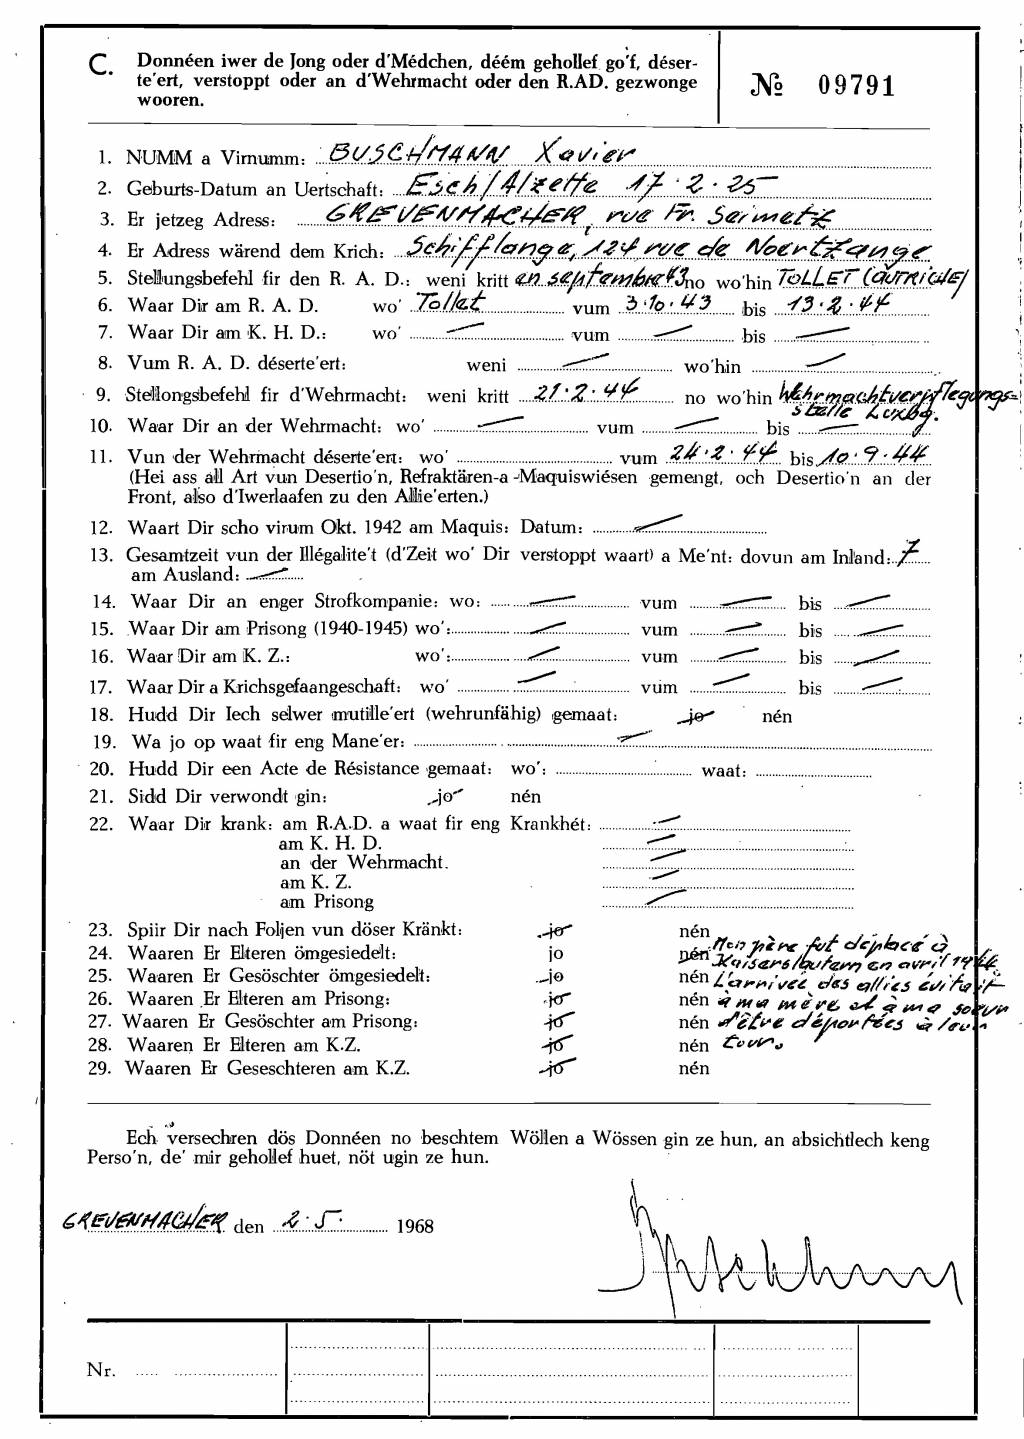 C. Donnéen iwer de Jong oder d'Médchen, déém gehollef go'f, déser-
te'ert, verstoppt oder an d'Wehrmacht oder den R.AD. gezwonge
wooren.
№ 09791
1. NUMM a Virnumm: BUSCHMANN Xavier
2. Geburts-Datum an Uertschaft: Esch/Alzette 17.2.25
3. Er jetzeg Adress: GREVENMACHER, rue Fr. Seimetz
4. Er Adress wärend dem Krich: Schifflange, 124 rue de Noertzange
5. Stellungsbefehl fir den R. A. D.: weni kritt en septembre 43 no wo'hin TOLLET (AUTRICHE)
6. Waar Dir am R. A. D. wo' Tollet vum 3.10.43 bis 13.2.44
7. Waar Dir am K. H. D.: wo' — vum — bis —
8. Vum R. A. D. déserte'ert: weni — wo'hin —
9. Stellongsbefehl fir d'Wehrmacht: weni kritt 21.2.44 no wo'hin Wehrmachtverpflegungs=
stelle Luxbg.
10. Waar Dir an der Wehrmacht: wo' — vum — bis —
11. Vun der Wehrmacht déserte'ert: wo' vum 24.2.44 bis 10.9.44
(Hei ass all Art vun Desertio'n, Refraktären-a -Maquiswiésen gemengt, och Desertio'n an der
Front, also d'Iwerlaafen zu den Allie'erten.)
12. Waart Dir scho virum Okt. 1942 am Maquis: Datum: —
13. Gesamtzeit vun der Illégalite't (d'Zeit wo' Dir verstoppt waart) a Me'nt: dovun am Inland: 7
am Ausland: —
14. Waar Dir an enger Strofkompanie: wo: — vum — bis —
15. Waar Dir am Prisong (1940-1945) wo': — vum — bis —
16. Waar Dir am K. Z.: wo': — vum — bis —
17. Waar Dir a Krichsgefaangeschaft: wo' — vum — bis —
18. Hudd Dir Iech selwer mutille'ert (wehrunfähig) gemaat: jo nén
19. Wa jo op waat fir eng Mane'er: —
20. Hudd Dir een Acte de Résistance gemaat: wo': waat:
21. Sidd Dir verwondt gin: jo nén
22. Waar Dir krank: am R.A.D. a waat fir eng Krankhét: —
am K. H. D. —
an der Wehrmacht. —
am K. Z. —
am Prisong —
23. Spiir Dir nach Foljen vun döser Kränkt: jo nén
24. Waaren Er Elteren ömgesiedelt: jo nén Mon père fut déplacé à
Kaiserslautern en avril 1944.
25. Waaren Er Gesöschter ömgesiedelt: jo nén L'arrivée des alliés évitait
26. Waaren Er Elteren am Prisong: jo nén à ma mère et à ma soeur
27. Waaren Er Gesöschter am Prisong: jo nén d'être déportées à leur
28. Waaren Er Elteren am K.Z. jo nén tour.
29. Waaren Er Geseschteren am K.Z. jo nén
Ech versechren dös Donnéen no beschtem Wöllen a Wössen gin ze hun, an absichtlech keng
Perso'n, de' mir gehollef huet, nöt ugin ze hun.
GREVENMACHER den 2.5. 1968
Buschmann
Nr.